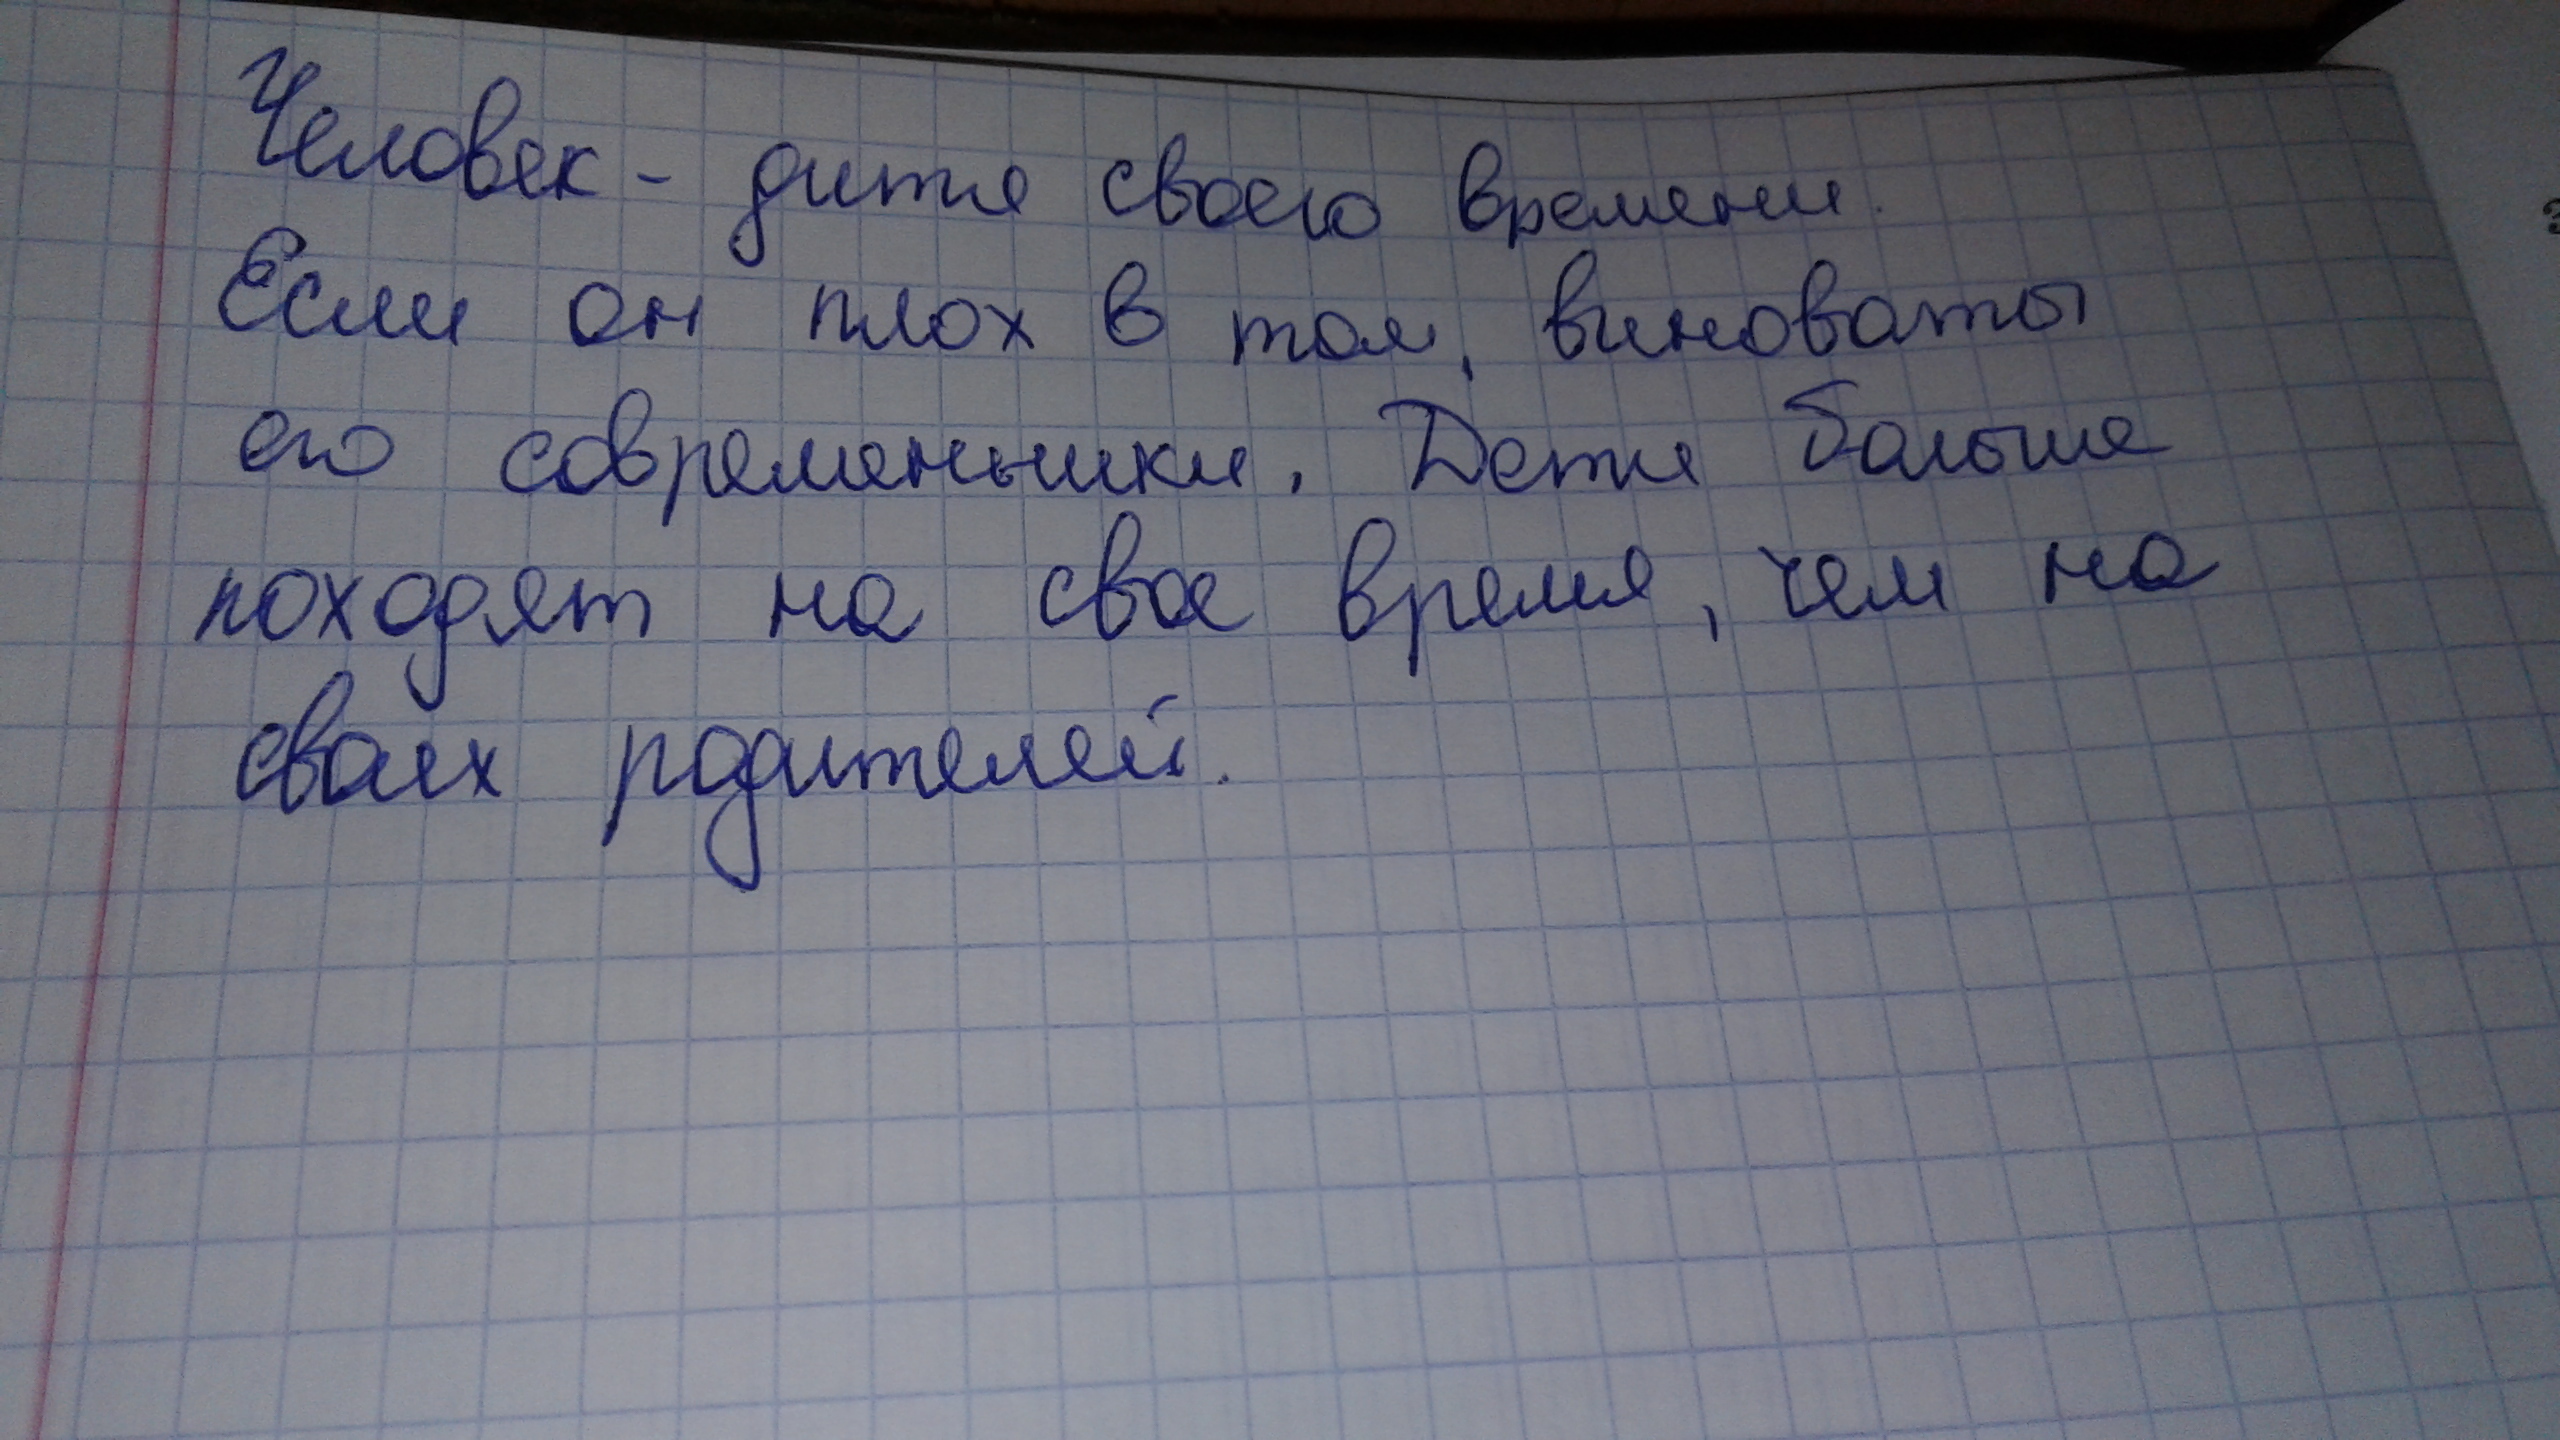 Человек - дитя своего времени.
Если он плох в том, виноваты
его современьики. Дети больше
походят на свое время, чем на
своих родителей.